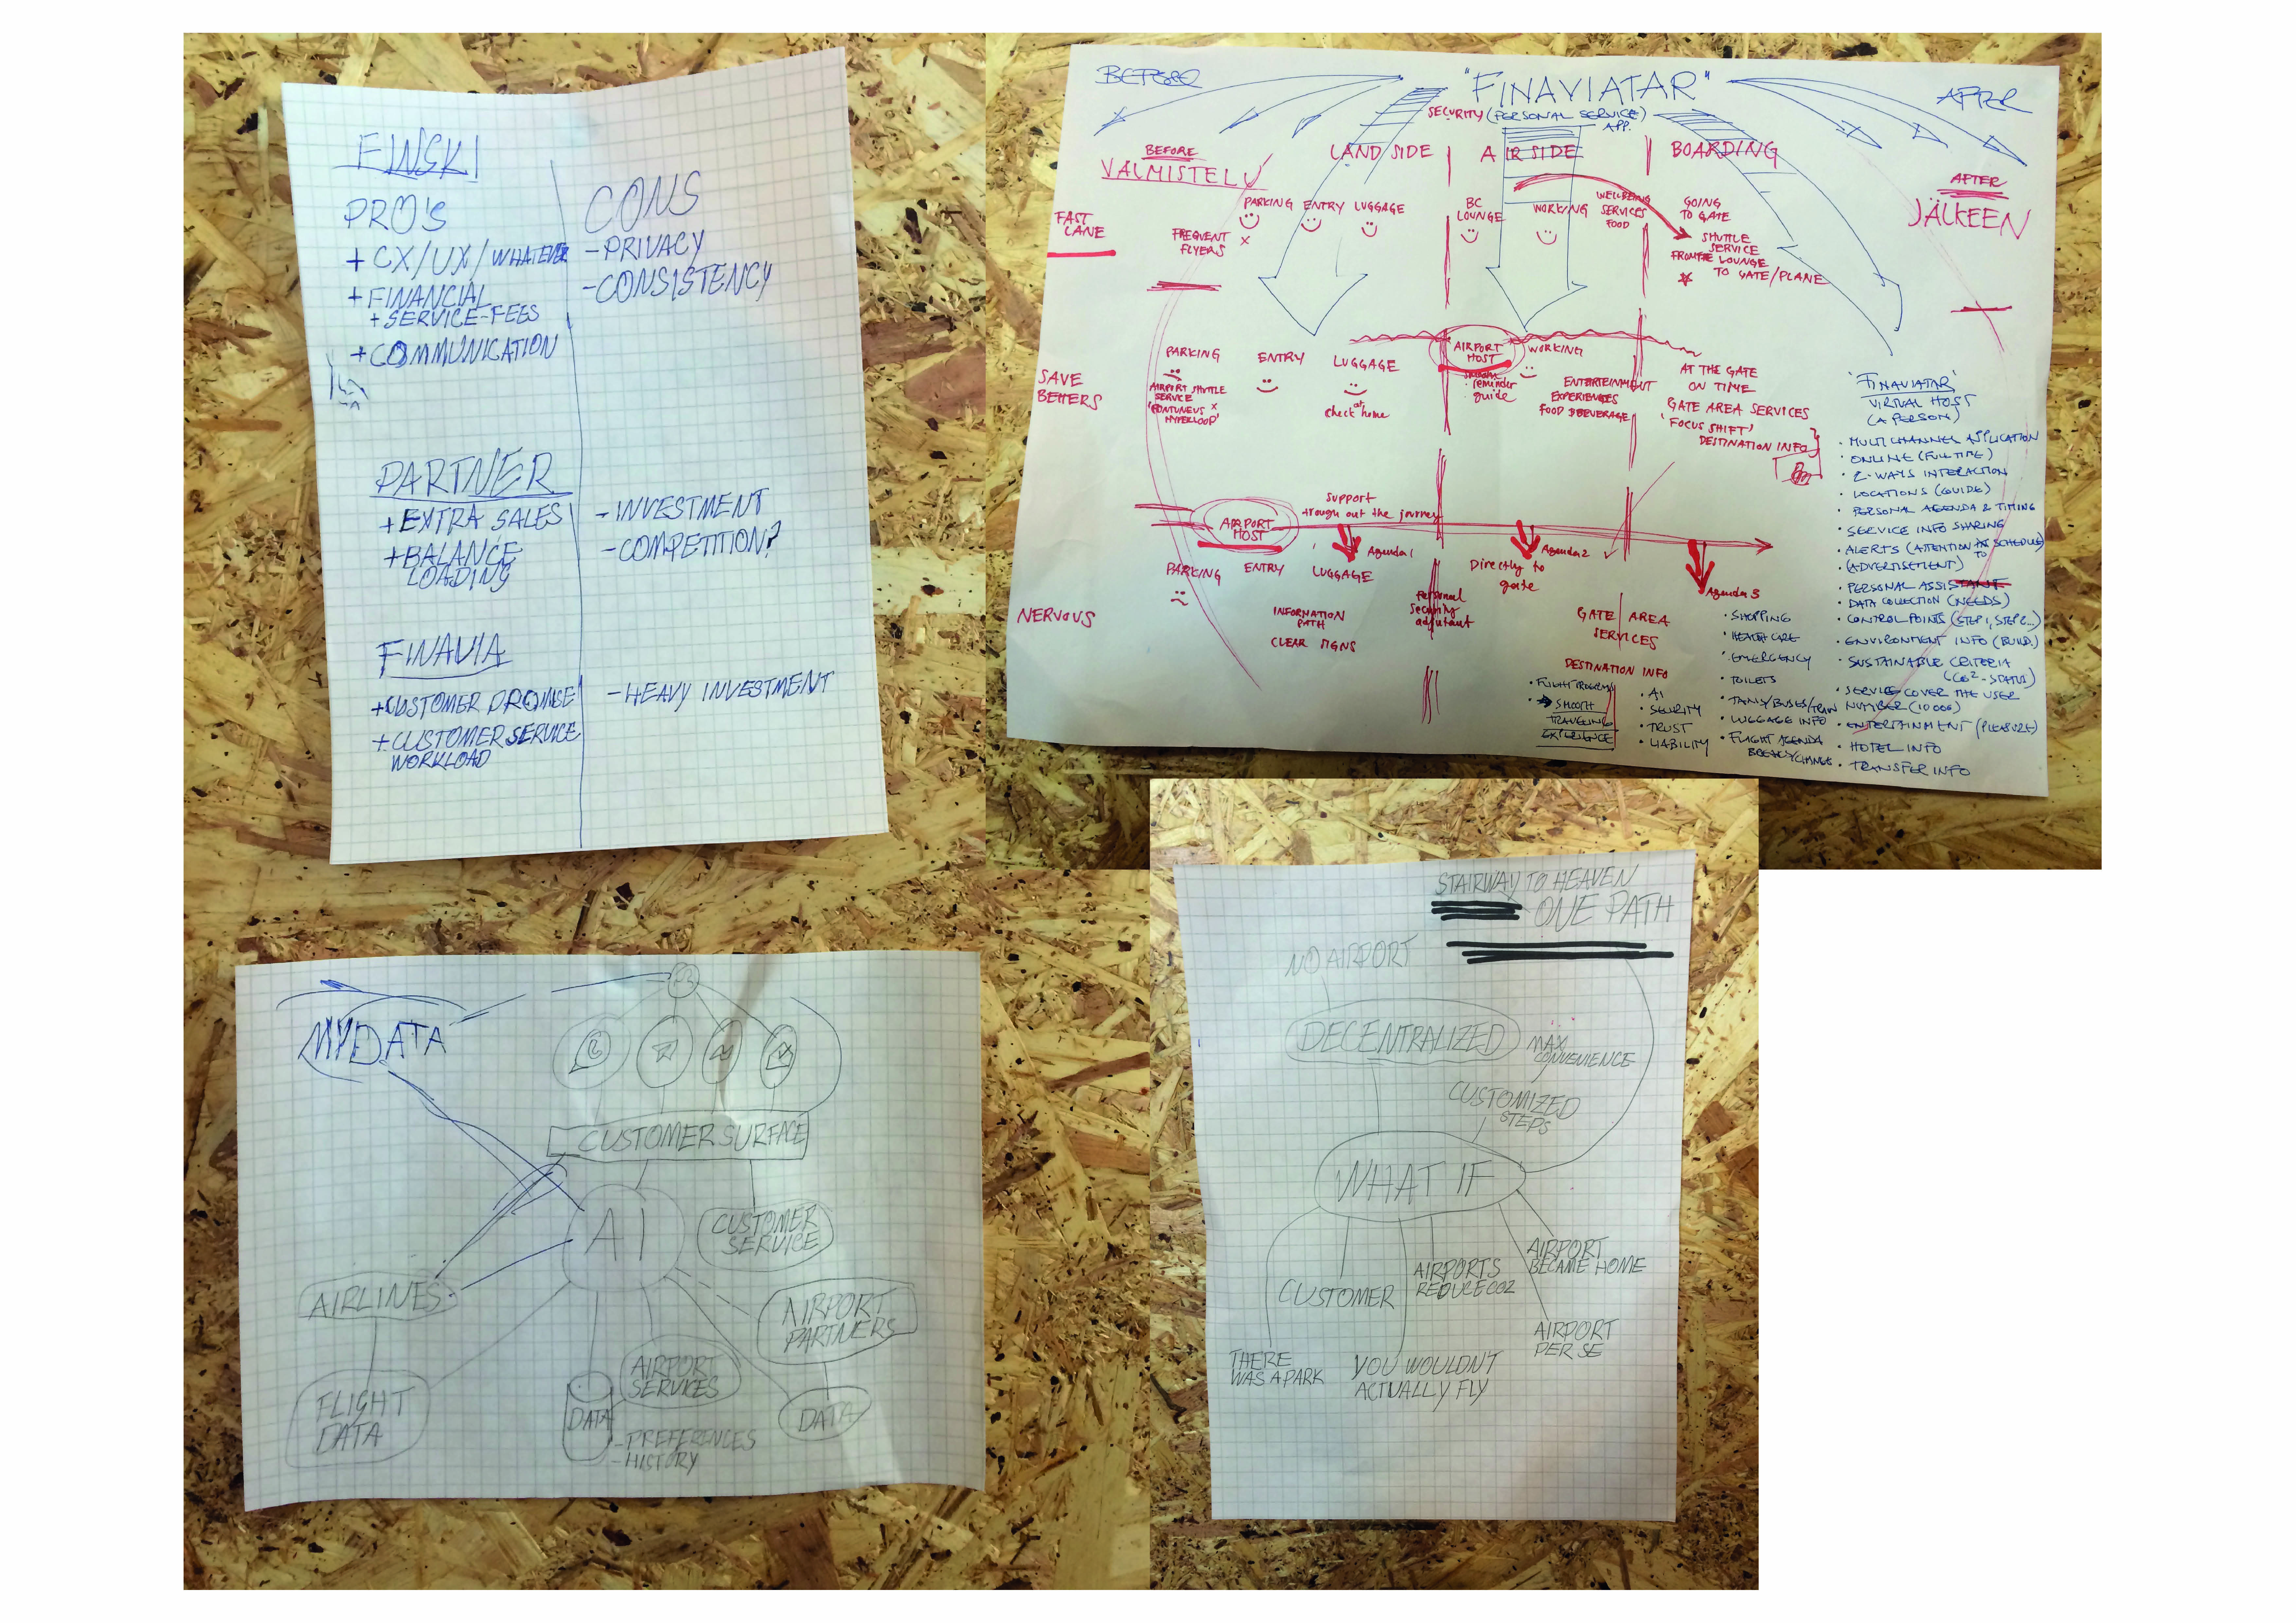 FINSKI
PRO'S
+ CX/UX/WHATEVER
+ FINANCIAL
+ SERVICE-FEES
+ COMMUNICATION
CONS
- PRIVACY
- CONSISTENCY
PARTNER
+ EXTRA SALES
+ BALANCE
LOADING
- INVESTMENT
- COMPETITION?
FINAVIA
+ CUSTOMER PROMISE
+ CUSTOMER SERVICE
WORKLOAD
- HEAVY INVESTMENT
BEFORE
"FINAVIATAR"
AFTER
SECURITY (PERSONAL SERVICE)
APP.
BEFORE
VALMISTELU
LAND SIDE
AIRSIDE
BOARDING
AFTER
JÄLKEEN
FAST
LANE
FREQUENT
FLYERS
PARKING
ENTRY
LUGGAGE
BC
LOUNGE
WORKING
WELLBEING
SERVICES
FOOD
GOING
TO GATE
SHUTTLE
SERVICE
FROM THE LOUNGE
TO GATE/PLANE
SAVE
PARKING
AIRPORT SHUTTLE
SERVICE
HYPERLOOP'
ENTRY
LUGGAGE
check at home
AIRPORT
HOST
reminder
guide
WORKING
ENTERTEINMENT
EXPERIENCES
FOOD & BEVERAGE
AT THE GATE
ON TIME
GATE AREA SERVICES
'FOCUS SHIFT'
DESTINATION INFO
AIRPORT
HOST
support
trough out the journey
Agenda 1
Agenda 2
Agenda 3
NERVOUS
PARKING
ENTRY
LUGGAGE
INFORMATION
PATH
CLEAR SIGNS
Personal
security
adjutant
Directly to
gate
GATE AREA
SERVICES
DESTINATION INFO
SMOOTH
TRAVELING
EXPERIENCE
• AI
• SECURITY
• TRUST
• LIABILITY
• SHOPPING
• HEALTH CARE
• EMERGENCY
• TOILETS
• TAXIS/BUSES/TRAIN
• LUGGAGE INFO
• FLIGHT AGENDA
'FINAVIATAR'
VIRTUAL HOST
(A PERSON)
• MULTI CHANNEL APPLICATION
• ONLINE (FULL TIME)
• 2-WAYS INTERACTION
• LOCATIONS (GUIDE)
• PERSONAL AGENDA & TIMING
• SERVICE INFO SHARING
• ALERTS (ATTENTION TO SCHEDULE)
• (ADVERTISEMENT)
• PERSONAL ASSISTANT
• DATA COLLECTION (NEEDS)
• CONTROL POINTS (STEP 1, STEP 2...)
• ENVIRONMENT INFO (BUILD.)
• SUSTAINABLE CRITERIA
(CO2-STATUS)
• SERVICE COVER THE USER
NUMBER (10 000)
• ENTERTAINMENT (PLEASURE)
• HOTEL INFO
• TRANSFER INFO
MYDATA
CUSTOMER SURFACE
AI
CUSTOMER
SERVICE
AIRLINES
AIRPORT
PARTNERS
AIRPORT
SERVICES
FLIGHT
DATA
DATA
- PREFERENCES
- HISTORY
DATA
STAIRWAY TO HEAVEN
ONE PATH
NO AIRPORT
DECENTRALIZED
MAX
CONVENIENCE
CUSTOMIZED
STEPS
WHAT IF
CUSTOMER
AIRPORTS
REDUCE CO2
AIRPORT
BECAME HOME
AIRPORT
PER SE
THERE
WAS A PARK
YOU WOULDN'T
ACTUALLY FLY